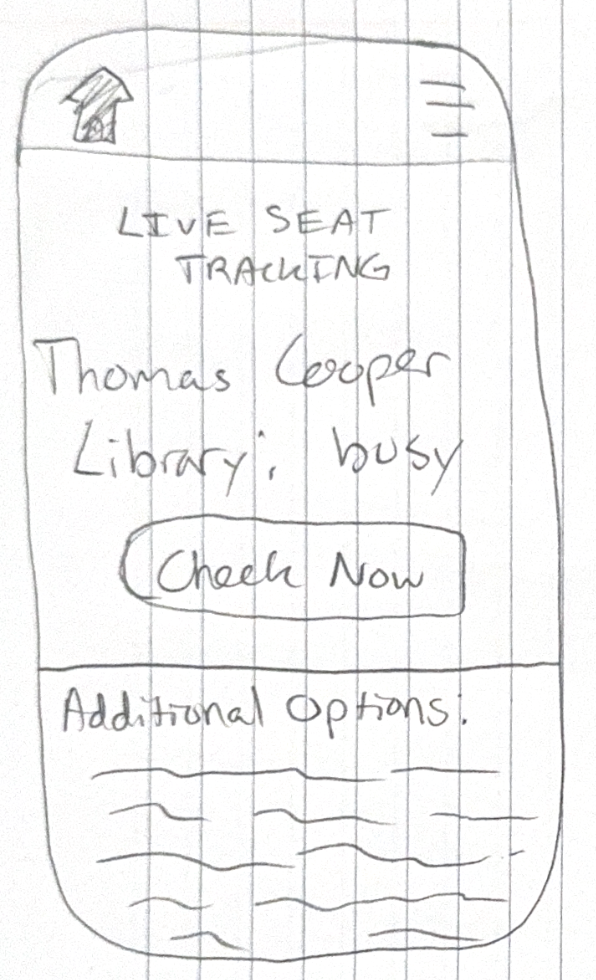 LIVE SEAT
TRACKING
Thomas Cooper
Library: busy
Check Now
Additional Options: